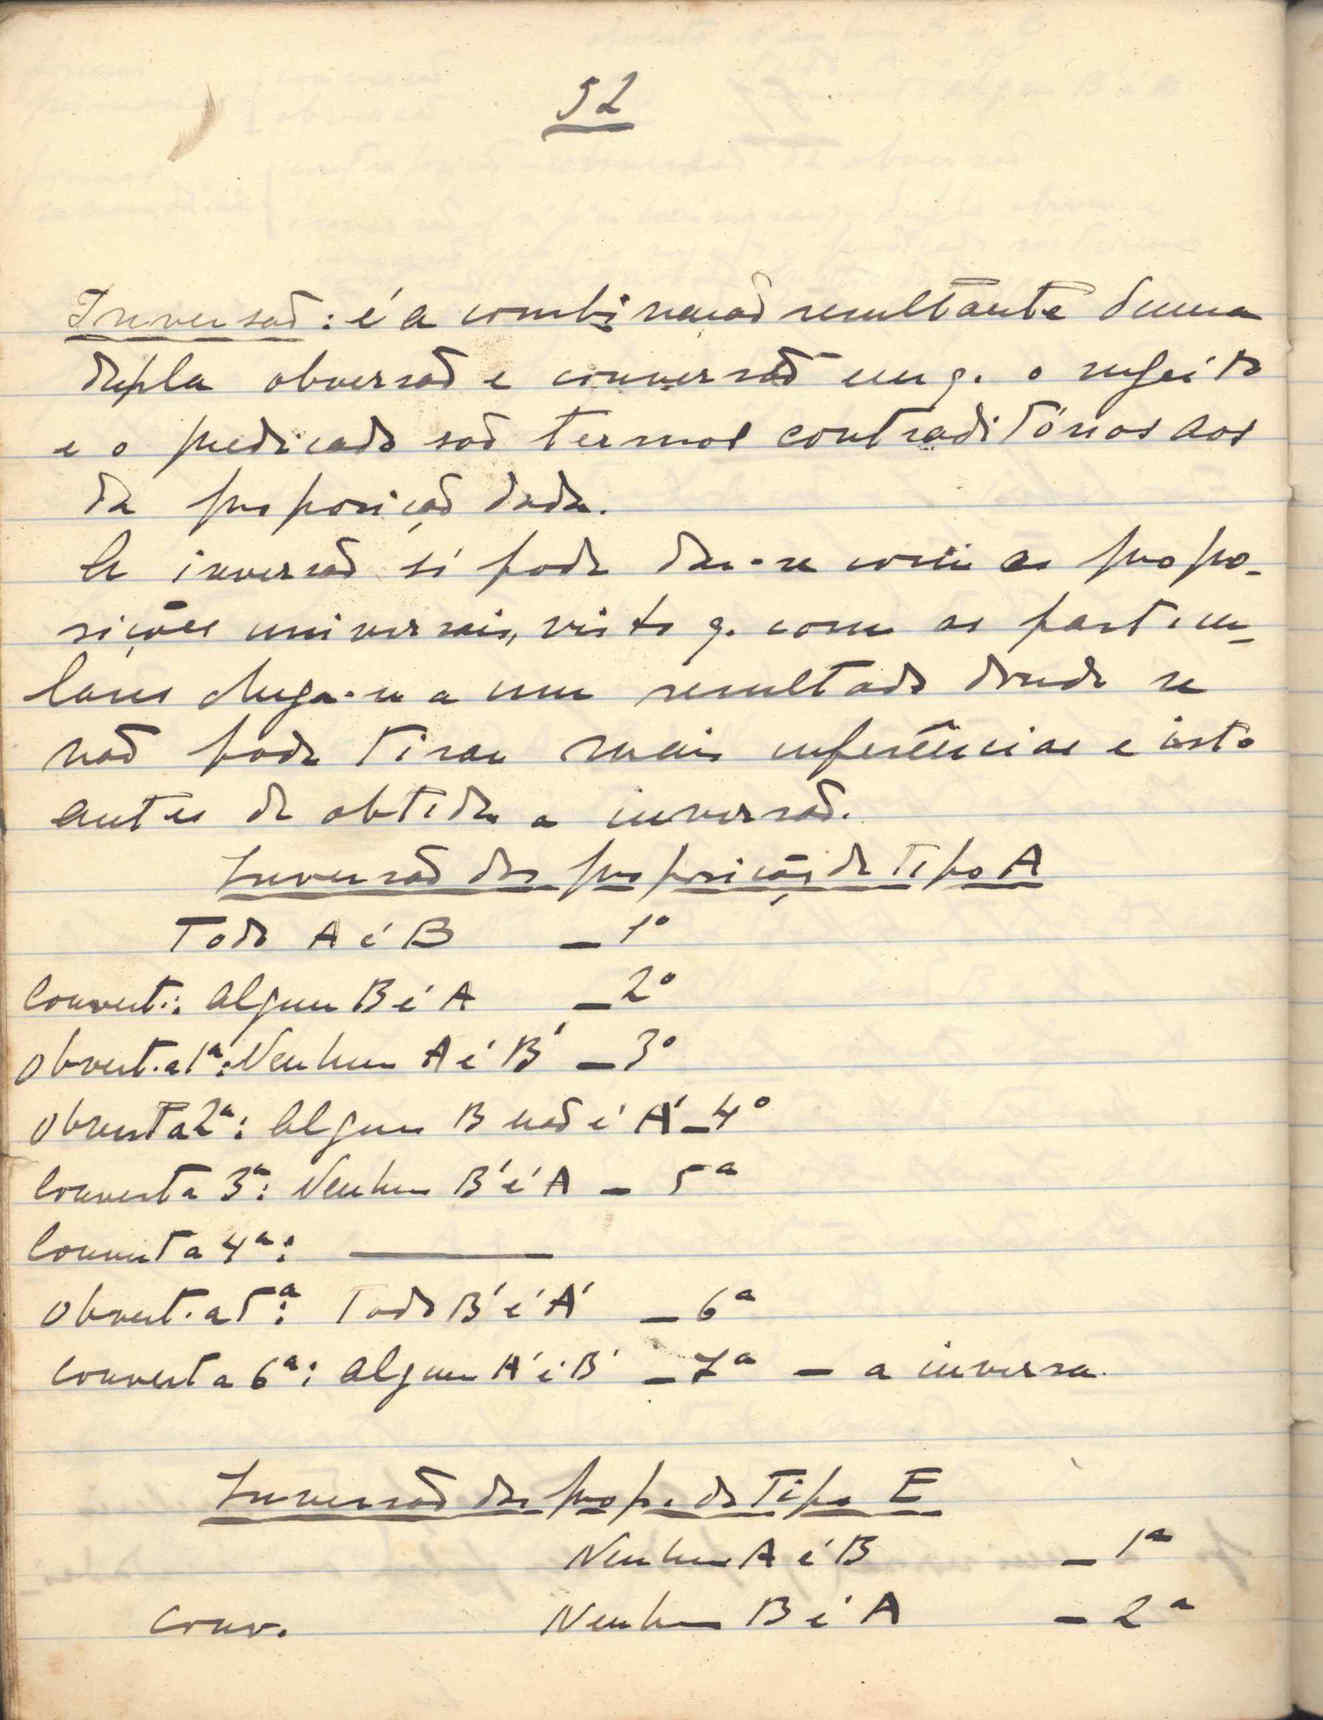 52
Inversão: é a combinação resultante duma
dupla obversão e conversão em q. o sujeito
e o predicado são termos contraditórios aos
da proposição dada.
A inversão só pode dar-se com as propo-
sições universais, visto q. com as particu-
lares chega-se a um resultado donde se
não pode tirar mais inferências e isto
antes de obtida a inversão.
Inversão das proposições do tipo A
Todo A é B - 1º
Convert.: Algum B é A - 2º
Obvert. a 1ª: Nenhum A é B' - 3º
Obverta 2ª: Algum B não é A' - 4º
Converta 3ª: Nenhum B' é A - 5ª
Converta 4ª: ———
Obvert. a 5ª: Todo B' é A' - 6ª
Convert a 6ª: Algum A' é B' - 7ª - a inversa.
Inversão das prop. do Tipo E
Nenhum A é B - 1ª
Conv. Nenhum B é A - 2ª